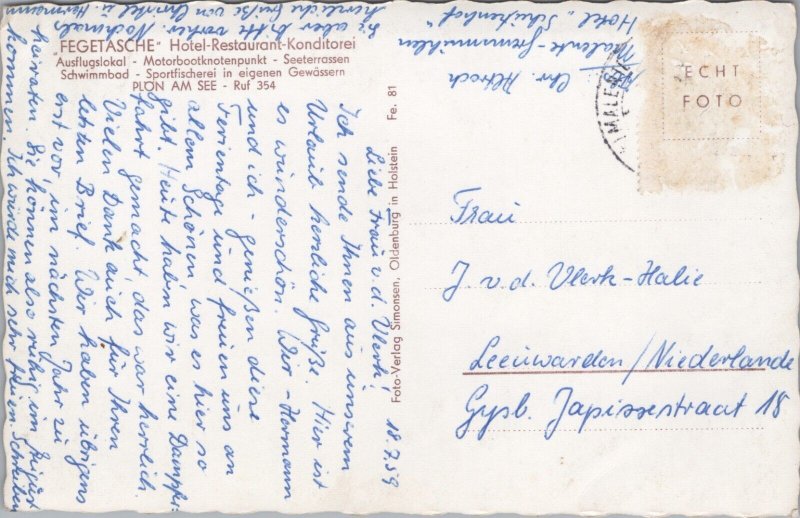 "FEGETASCHE" Hotel-Restaurant-Konditorei
Ausflugslokal - Motorbootknotenpunkt - Seeterrassen
Schwimmbad - Sportfischerei in eigenen Gewässern
PLÖN AM SEE - Ruf 354
18.7.59
Liebe Frau v. d. Vlerk!
Ich sende Ihnen aus unserem
Urlaub herzliche Grüße. Hier ist
es wunderschön. Wir - Hermann
und ich - genießen diese
Ferientage und freuen uns an
allem Schönen was es hier so
gibt. Heute haben wir eine Dampfer-
fahrt gemacht, das war herrlich.
Vielen Dank auch für Ihren
letzten Brief. Wir haben übrigens
erst vor, im nächsten Jahr zu
heiraten. Sie können also ruhig im August
kommen. Ich würde mich sehr freuen. Schreiben
Sie aber bitte vorher. Nochmals
herzliche Grüße von und Hermann
Malente-Gremsmühlen
Hotel "Schützenhof"
Foto-Verlag Simonsen, Oldenburg in Holstein Fe. 81
MALENTE
ECHT
FOTO
Frau
J. v. d. Vlerk-Halie
Leeuwarden/Niederlande
Gysb. Japissestraat 18